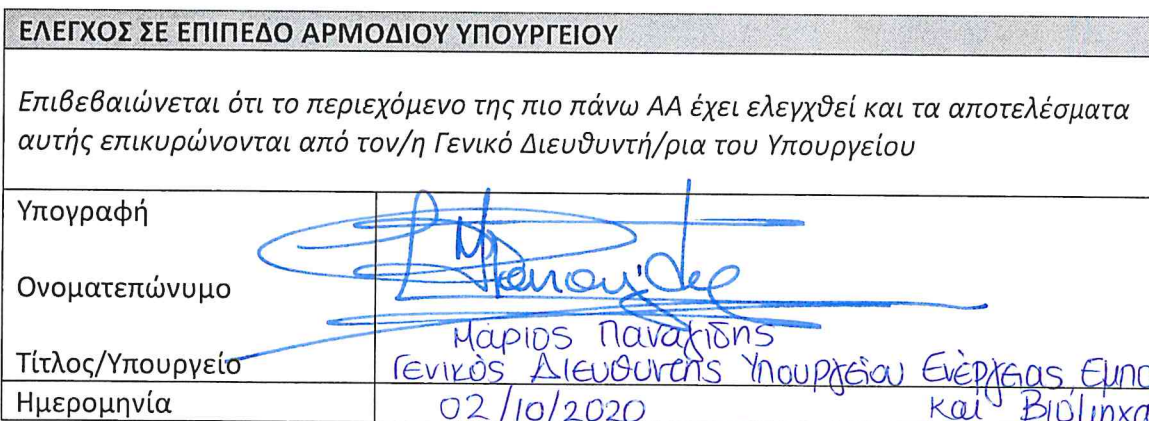 ΕΛΕΓΧΟΣ ΣΕ ΕΠΙΠΕΔΟ ΑΡΜΟΔΙΟΥ ΥΠΟΥΡΓΕΙΟΥ
Επιβεβαιώνεται ότι το περιεχόμενο της πιο πάνω ΑΑ έχει ελεγχθεί και τα αποτελέσματα
αυτής επικυρώνονται από τον/η Γενικό Διευθυντή/ρια του Υπουργείου
Υπογραφή
Ονοματεπώνυμο
Μάριος Παναγίδης
Τίτλος/Υπουργείο Γενικός Διευθυντής Υπουργείου Ενέργειας, Εμπο
Ημερομηνία 02/10/2020 και